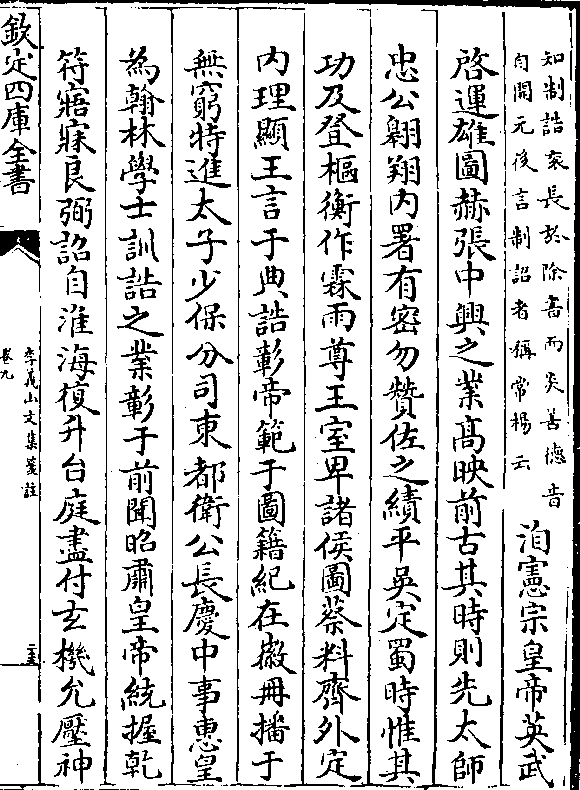 知制誥衮長於除書而炎善德音
自開元後言制詔者稱常楊云
洎憲宗皇帝英武
啓運雄圖赫張中興之業髙映前古其時則先太師
忠公翺翔内署有密勿贊佐之績平吳定蜀時惟其
功及登樞衡作霖雨尊王室卑諸侯圖蔡料齊外定
内理顯王言于典誥彰帝範于圖籍紀在徽冊播于
無窮特進太子少保分司東都衛公長慶中事惠皇
為翰林學士訓誥之業彰于前聞昭肅皇帝統握乾
符寤寐良弼詔自淮海復升台庭盡付玄機允壓神
欽定四庫全書
李義山文集箋註
卷九